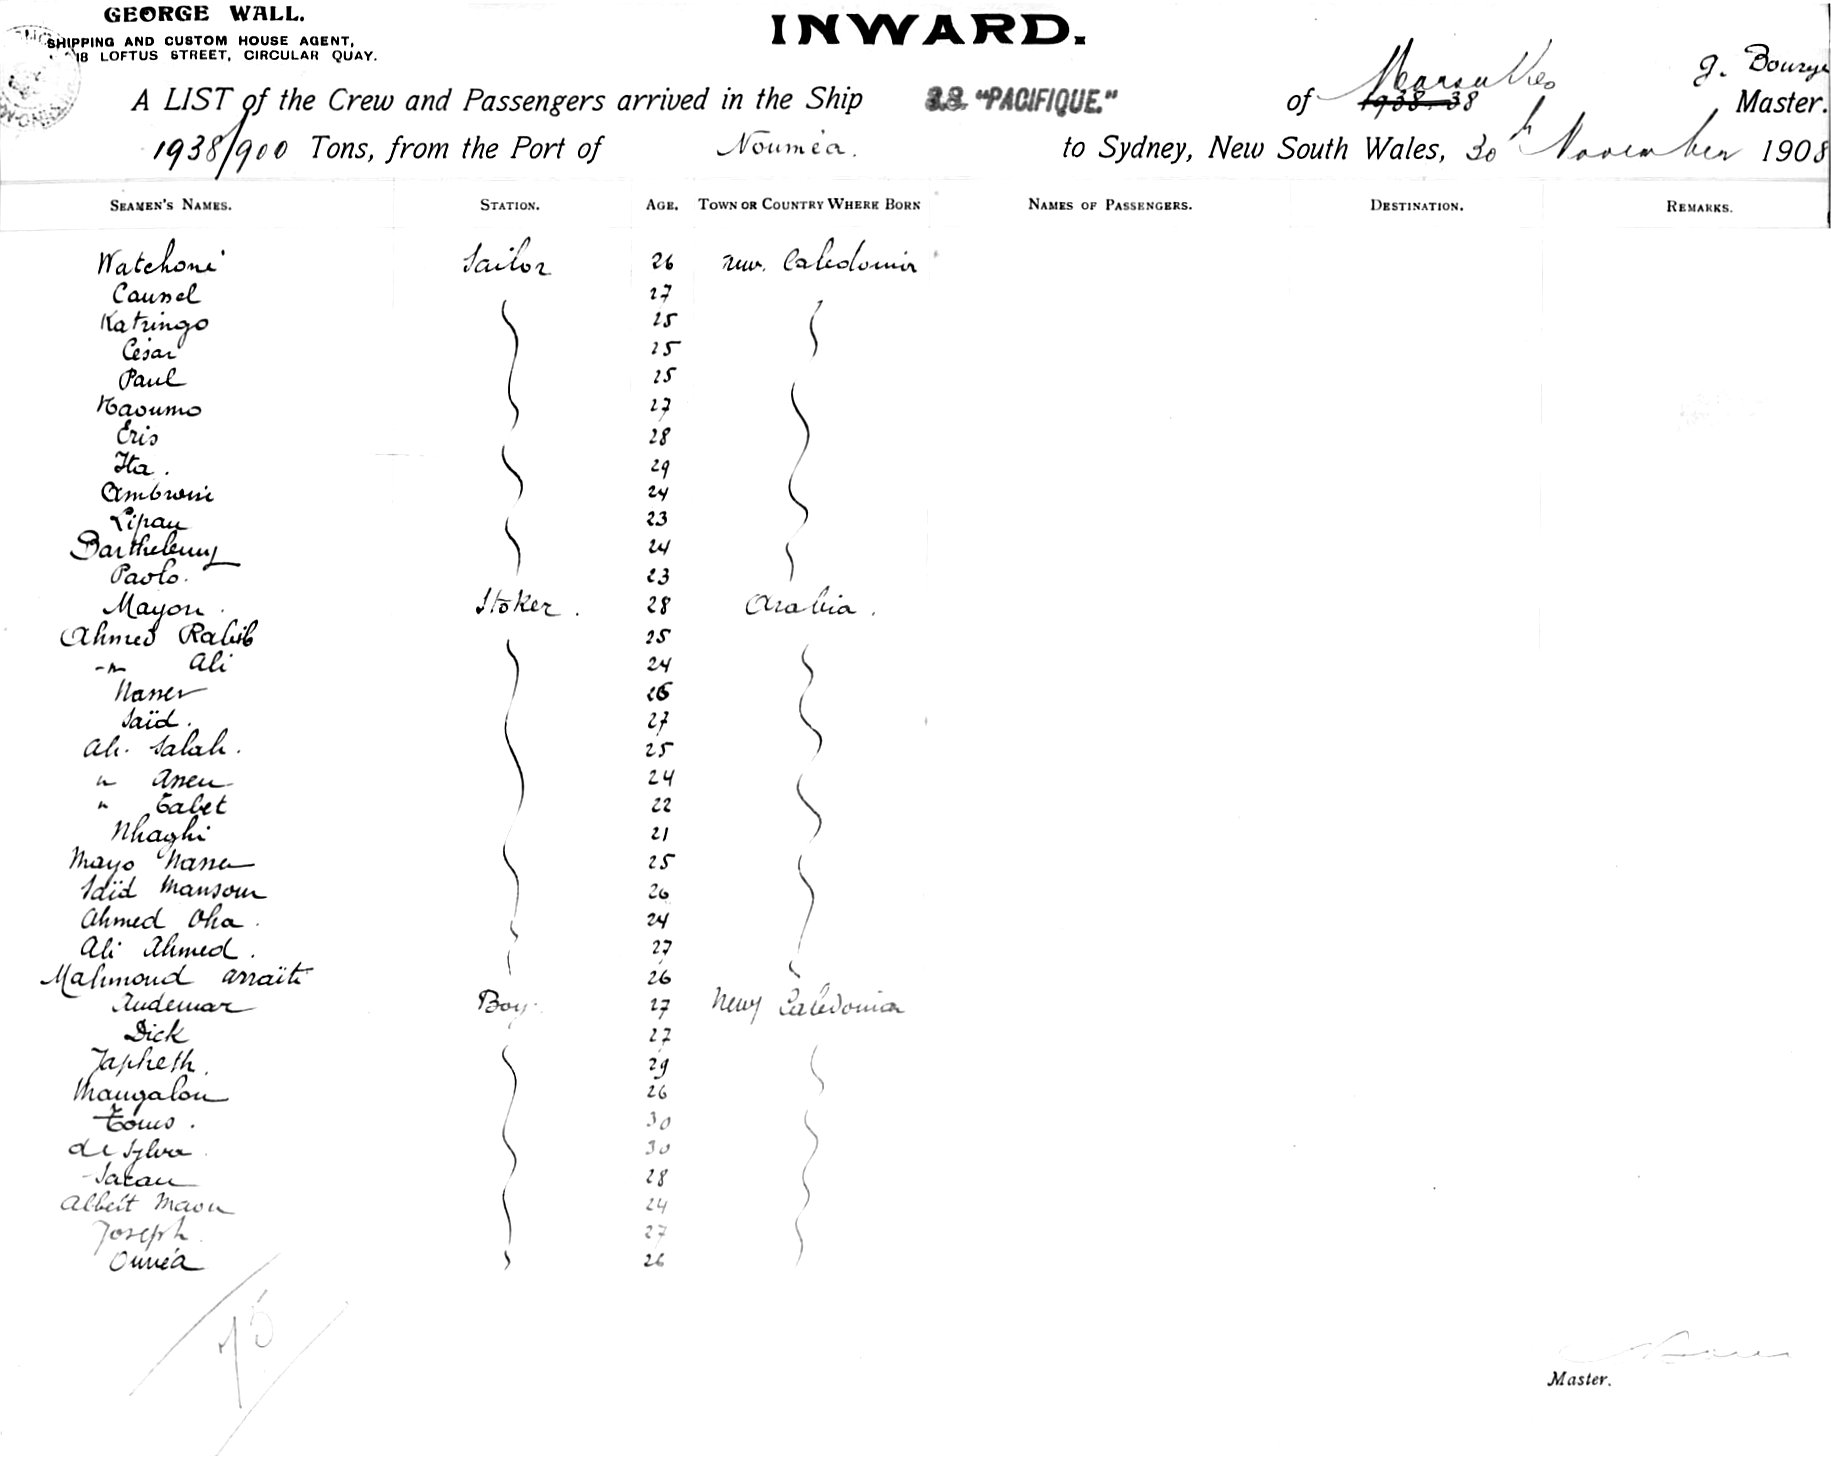 GEORGE WALL.
SHIPPING AND CUSTOM HOUSE AGENT,
18 LOFTUS STREET, CIRCULAR QUAY.
INWARD.
A LIST of the Crew and Passengers arrived in the Ship S.S. "PACIFIQUE." of Marseilles 1938-38 J. Bourge Master.
1938/900 Tons, from the Port of Nouméa. to Sydney, New South Wales, 30th November 1908
SEAMEN'S NAMES. STATION. AGE. TOWN OR COUNTRY WHERE BORN NAMES OF PASSENGERS. DESTINATION. REMARKS.
Watchoné Sailor 26 New. Caledonia
Caunel 27
Katringo 25
César 25
Paul 25
Kaoumo 27
Eris 28
Ita. 29
Ambroise 24
Lipau 23
Barthelemy 24
Paolo. 23
Mayon. Stoker. 28 Arabia.
Ahmed Rabib 25
-"- Ali 24
Nasser 26
Saïd. 27
Ali. Salah. 25
" Assen 24
" Tabet 22
Nhaghi 21
Mayo Nasser 25
Saïd Mansour 26
Ahmed Oha. 24
Ali Ahmed. 27
Mahmoud 26
Audemar Boy. 27 New Caledonia
Dick 27
Japheth. 29
Mangalou 26
Toms. 30
de Sylva. 30
Satau 28
Albert Maou 24
Joseph. 27
Ounéa 26
Master.